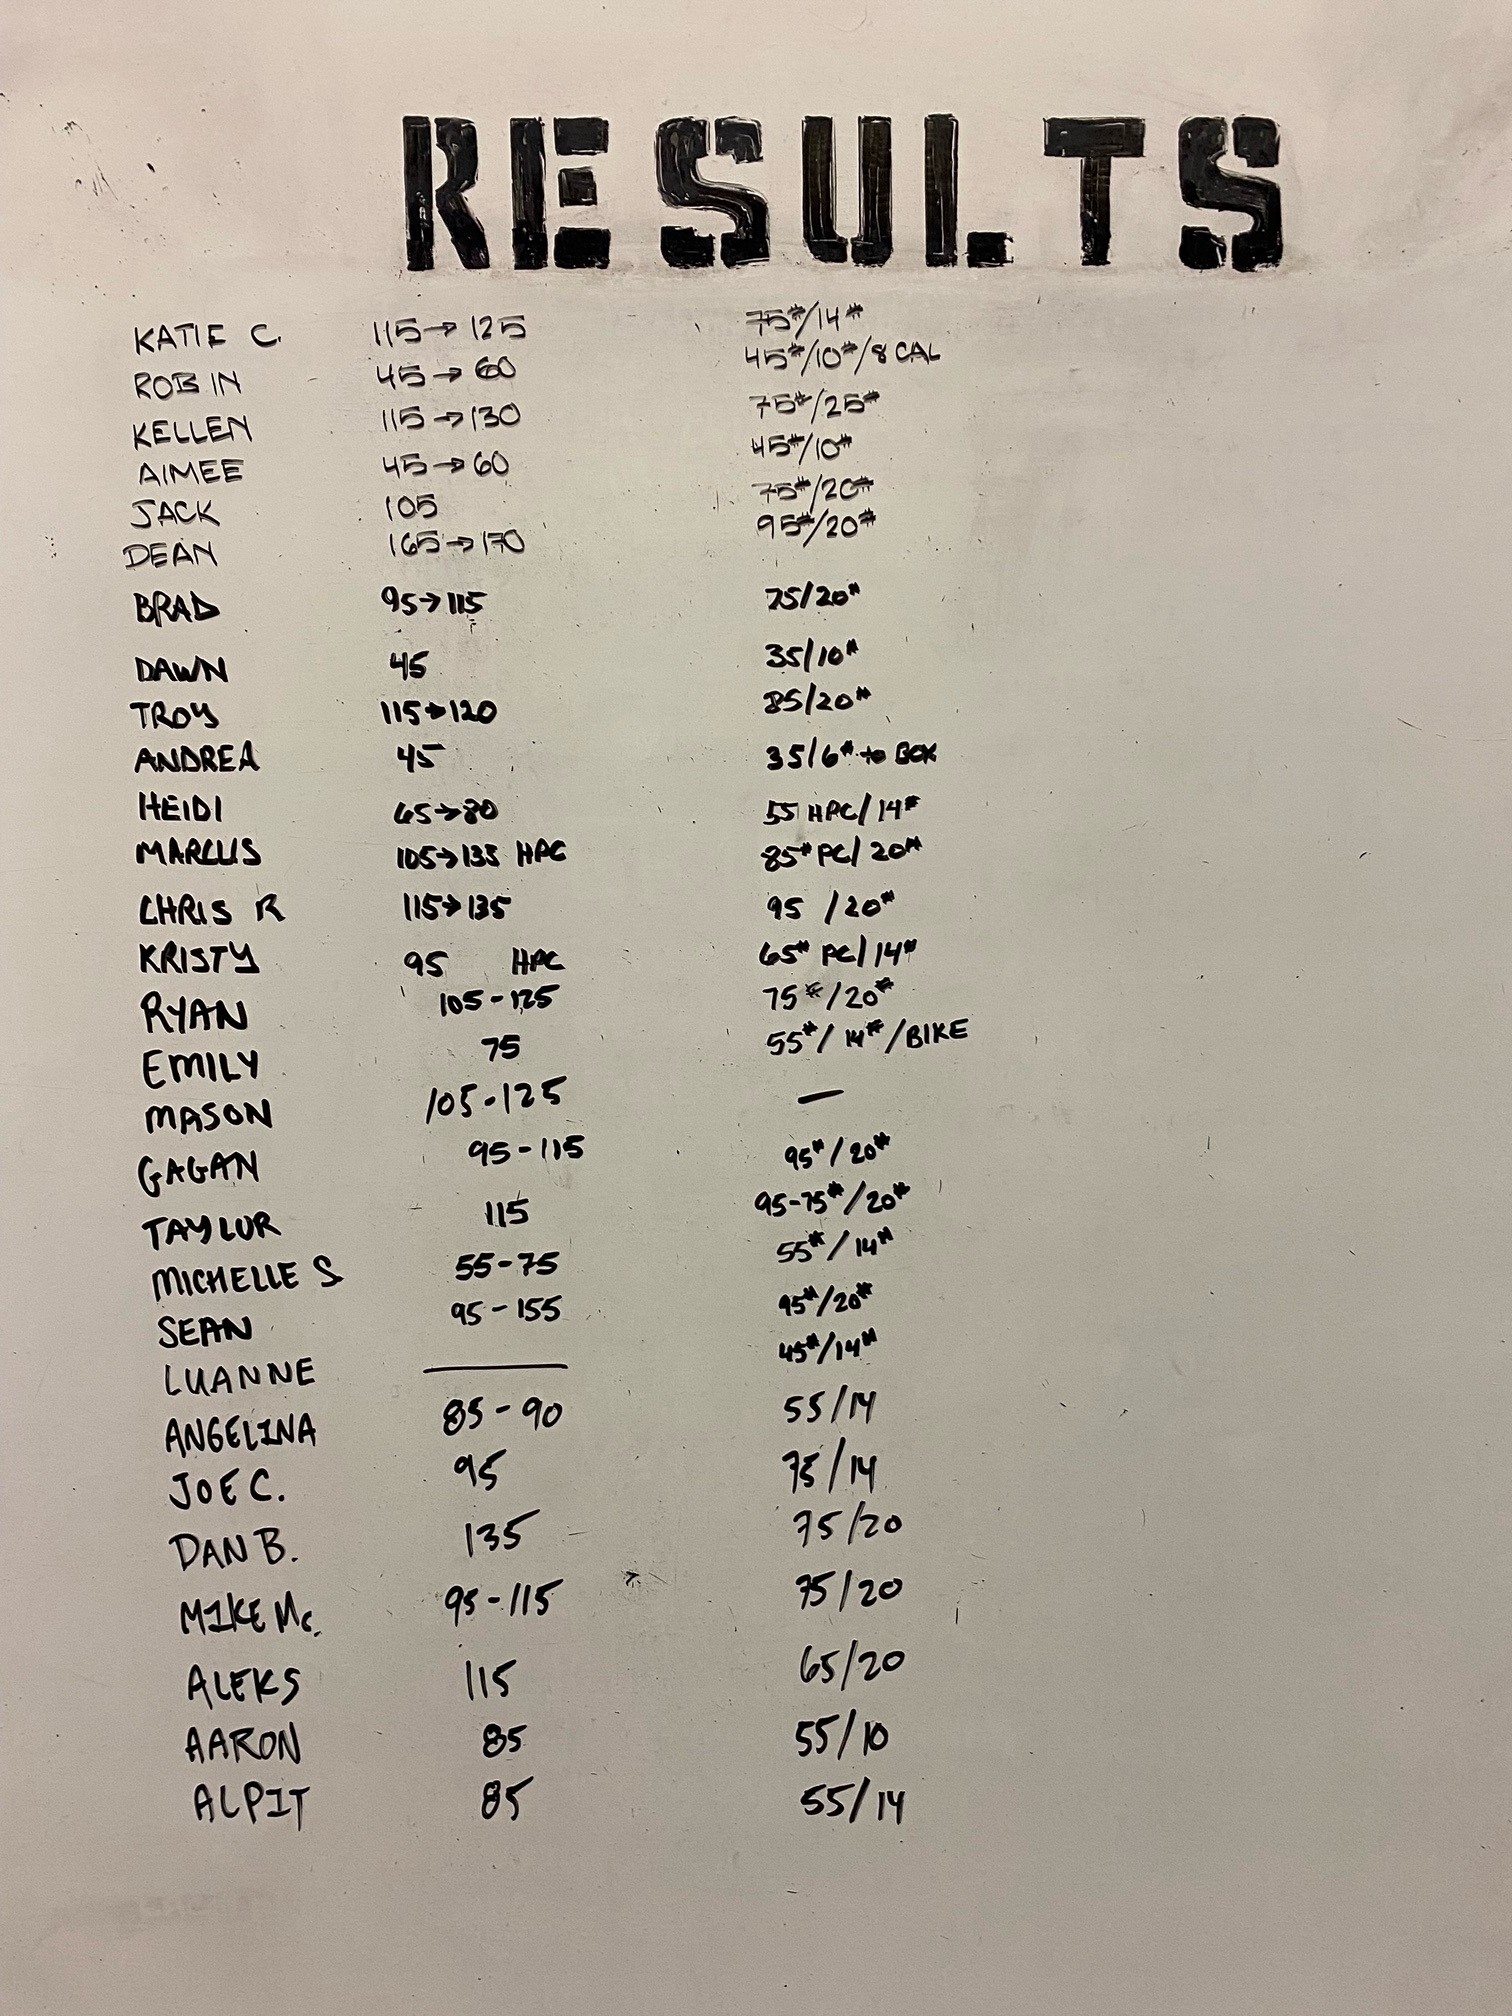 RESULTS
KATIE C. 115→125 75#/14#
ROBIN 45→60 45#/10#/8 CAL
KELLEN 115→130 75#/25#
AIMEE 45→60 45#/10#
JACK 105 75#/20#
DEAN 165→170 95#/20#
BRAD 95→115 75/20#
DAWN 45 35/10#
TROY 115→120 85/20#
ANDREA 45 35/6# to BOX
HEIDI 65→80 55 HPC/14#
MARCUS 105→135 HPC 85# PC/20#
CHRIS R 115→135 95 /20#
KRISTY 95 HPC 65# PC/14#
RYAN 105-125 75#/20#
EMILY 75 55#/14#/BIKE
MASON 105-125 —
GAGAN 95-115 95#/20#
TAYLOR 115 95-75#/20#
MICHELLE S 55-75 55#/14#
SEAN 95-155 95#/20#
LUANNE — 45#/14#
ANGELINA 85-90 55/14
JOE C. 95 75/14
DAN B. 135 75/20
MIKE Mc. 95-115 75/20
ALEKS 115 65/20
AARON 85 55/10
ALPIT 85 55/14